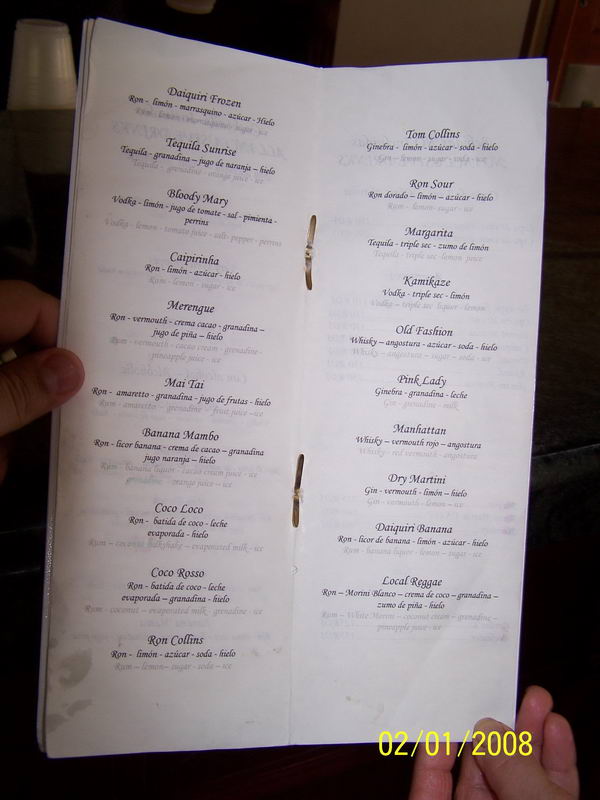 Daiquiri Frozen
Ron - limón - marrasquino - azúcar - Hielo
Rum - lemon - marrasquino - sugar - ice
Tequila Sunrise
Tequila - granadina – jugo de naranja – hielo
Tequila - grenadine - orange juice - ice
Bloody Mary
Vodka - limón - jugo de tomate - sal - pimienta -
perrins
Vodka - lemon - tomato juice - salt - pepper - perrins
Caipirinha
Ron - limón - azúcar - hielo
Rum - lemon - sugar - ice
Merengue
Ron - vermouth - crema cacao - granadina –
jugo de piña – hielo
Rum - vermouth - cacao cream - grenadine -
pineapple juice - ice
Mai Tai
Ron - amaretto - granadina - jugo de frutas - hielo
Rum - amaretto - grenadine - fruit juice - ice
Banana Mambo
Ron - licor banana - crema de cacao – granadina
jugo naranja – hielo
Rum - banana liquor - cacao cream juice - ice
grenadine - orange juice - ice
Coco Loco
Ron - batida de coco - leche
evaporada - hielo
Rum – coconut milkshake – evaporated milk - ice
Coco Rosso
Ron - batida de coco - leche
evaporada – granadina - hielo
Rum - coconut – evaporated milk - grenadine - ice
Ron Collins
Ron - limón - azúcar - soda - hielo
Rum – lemon – sugar - soda – ice
Tom Collins
Ginebra - limón - azúcar - soda - hielo
Gin - lemon - sugar - soda - ice
Ron Sour
Ron dorado – limón – azúcar - hielo
Rum - lemon - sugar - ice
Margarita
Tequila - triple sec - zumo de limón
Tequila - triple sec - lemon juice
Kamikaze
Vodka - triple sec - limón
Vodka – triple sec liquer - lemon
Old Fashion
Whisky – angostura - azúcar - soda - hielo
Whisky – angostura – sugar – soda - ice
Pink Lady
Ginebra - granadina - leche
Gin - grenadine - milk
Manhattan
Whisky – vermouth rojo – angostura
Whisky - red vermouth - angostura
Dry Martini
Gin - vermouth - limón – hielo
Gin - vermouth - lemon – ice
Daiquiri Banana
Ron - licor de banana - limón - azúcar - hielo
Rum - banana liquor - lemon – sugar - ice
Local Reggae
Ron – Morini Blanco – crema de coco – granadina –
zumo de piña - hielo
Rum – White Morini – coconut cream – grenadine –
pineapple juice - ice
02/01/2008